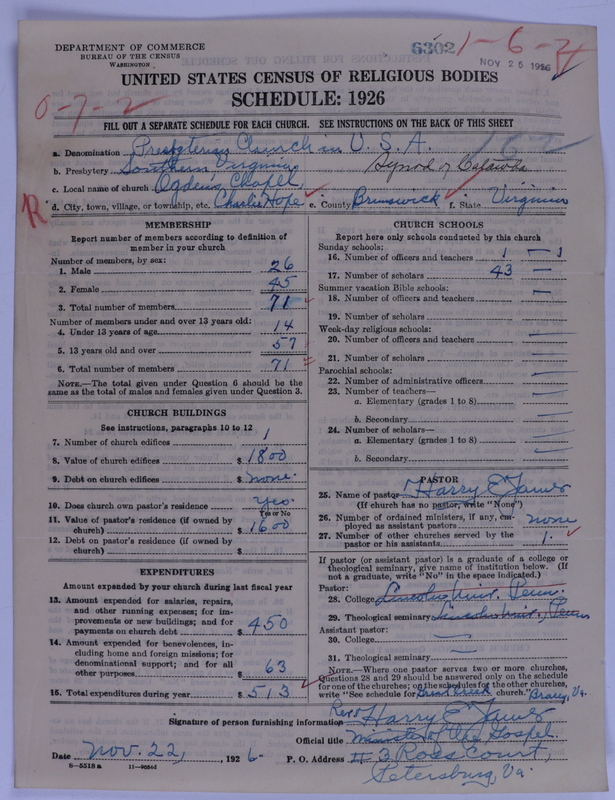 DEPARTMENT OF COMMERCE
BUREAU OF THE CENSUS
WASHINGTON
63021-6-2
NOV 25 1926
UNITED STATES CENSUS OF RELIGIOUS BODIES
SCHEDULE: 1926
0-7-2
FILL OUT A SEPARATE SCHEDULE FOR EACH CHURCH. SEE INSTRUCTIONS ON THE BACK OF THIS SHEET
162
a. Denomination Presbyterian Church in U. S. A.
b. Presbytery Southern Virginia Synod of Catawba
c. Local name of church Ogdens, Chapel,
R
d. City, town, village, or township, etc. Charlie Hope e. County Brunswick f. State Virginia
MEMBERSHIP
Report number of members according to definition of
member in your church
Number of members, by sex:
1. Male 26
2. Female 45
3. Total number of members 71
Number of members under and over 13 years old:
4. Under 13 years of age 14
5. 13 years old and over 57
6. Total number of members 71
NOTE.—The total given under Question 6 should be the
same as the total of males and females given under Question 3.
CHURCH BUILDINGS
See instructions, paragraphs 10 to 12
7. Number of church edifices 1
8. Value of church edifices $ 1800
9. Debt on church edifices $ none.
10. Does church own pastor's residence yes.
Yes or No
11. Value of pastor's residence (if owned by
church) $ 1600
12. Debt on pastor's residence (if owned by
church) $
EXPENDITURES
Amount expended by your church during last fiscal year
13. Amount expended for salaries, repairs,
and other running expenses; for im-
provements or new buildings; and for
payments on church debt $ 450
14. Amount expended for benevolences, in-
cluding home and foreign missions; for
denominational support; and for all
other purposes $ 63
15. Total expenditures during year $ 513
CHURCH SCHOOLS
Report here only schools conducted by this church
Sunday schools:
16. Number of officers and teachers 1
17. Number of scholars 43
Summer vacation Bible schools:
18. Number of officers and teachers —
19. Number of scholars
Week-day religious schools:
20. Number of officers and teachers —
21. Number of scholars —
Parochial schools:
22. Number of administrative officers —
23. Number of teachers—
a. Elementary (grades 1 to 8) —
b. Secondary —
24. Number of scholars—
a. Elementary (grades 1 to 8) —
b. Secondary —
PASTOR
25. Name of pastor Harry E.
(If church has no pastor, write "None")
26. Number of ordained ministers, if any, em-
ployed as assistant pastors none
27. Number of other churches served by the
pastor or his assistants 1.
If pastor (or assistant pastor) is a graduate of a college or
theological seminary, give name of institution below. (If
not a graduate, write "No" in the space indicated.)
Pastor:
28. College Lincoln Univ. Penn.
29. Theological seminary Lincoln Univ., Penn
Assistant pastor:
30. College —
31. Theological seminary —
NOTE.—Where one pastor serves two or more churches,
Questions 28 and 29 should be answered only on the schedule
for one of the churches; on the schedules for the other churches,
write "See schedule for church."
Signature of person furnishing information Rev. Harry E.
Official title Minister of the Gospel.
Date Nov. 22, 1926. P. O. Address # 3 Ross Court,
Petersburg, Va.
8—5518 a